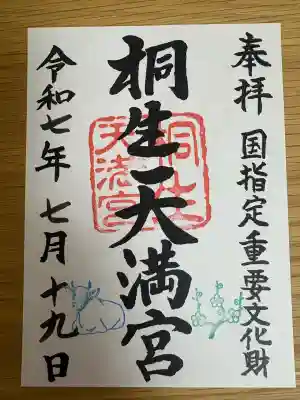 奉拝 国指定重要文化財
桐生天満宮
桐生
天满宮
令和七年 七月 十九日